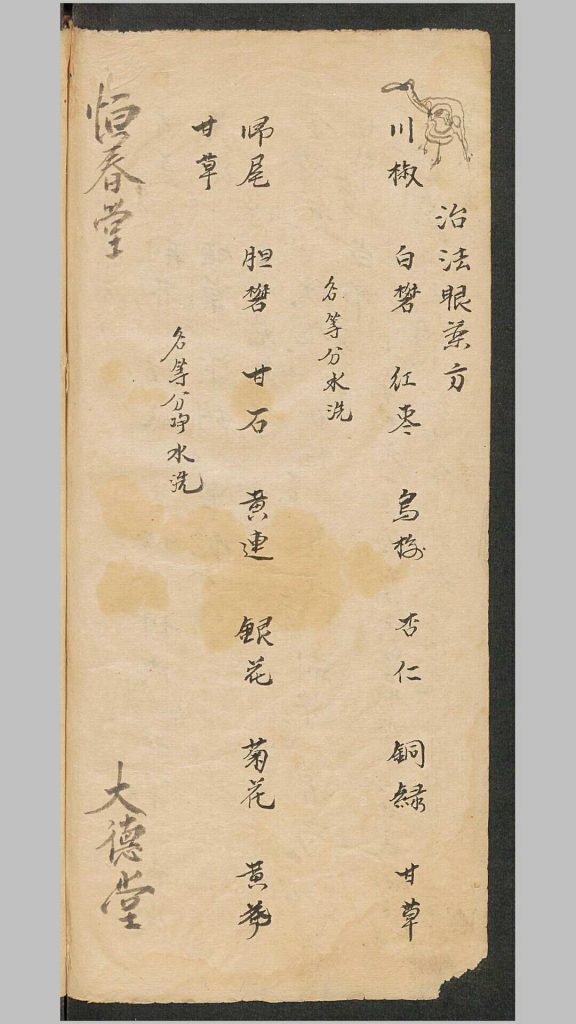 治法眼葯方
川椒 白礬 红枣 烏梅 杏仁 銅緑 甘草
各等分水洗
㷌尾 胆礬 甘石 黄連 銀花 菊花 黄芩
甘草
各等分净水洗
恒春堂 大德堂